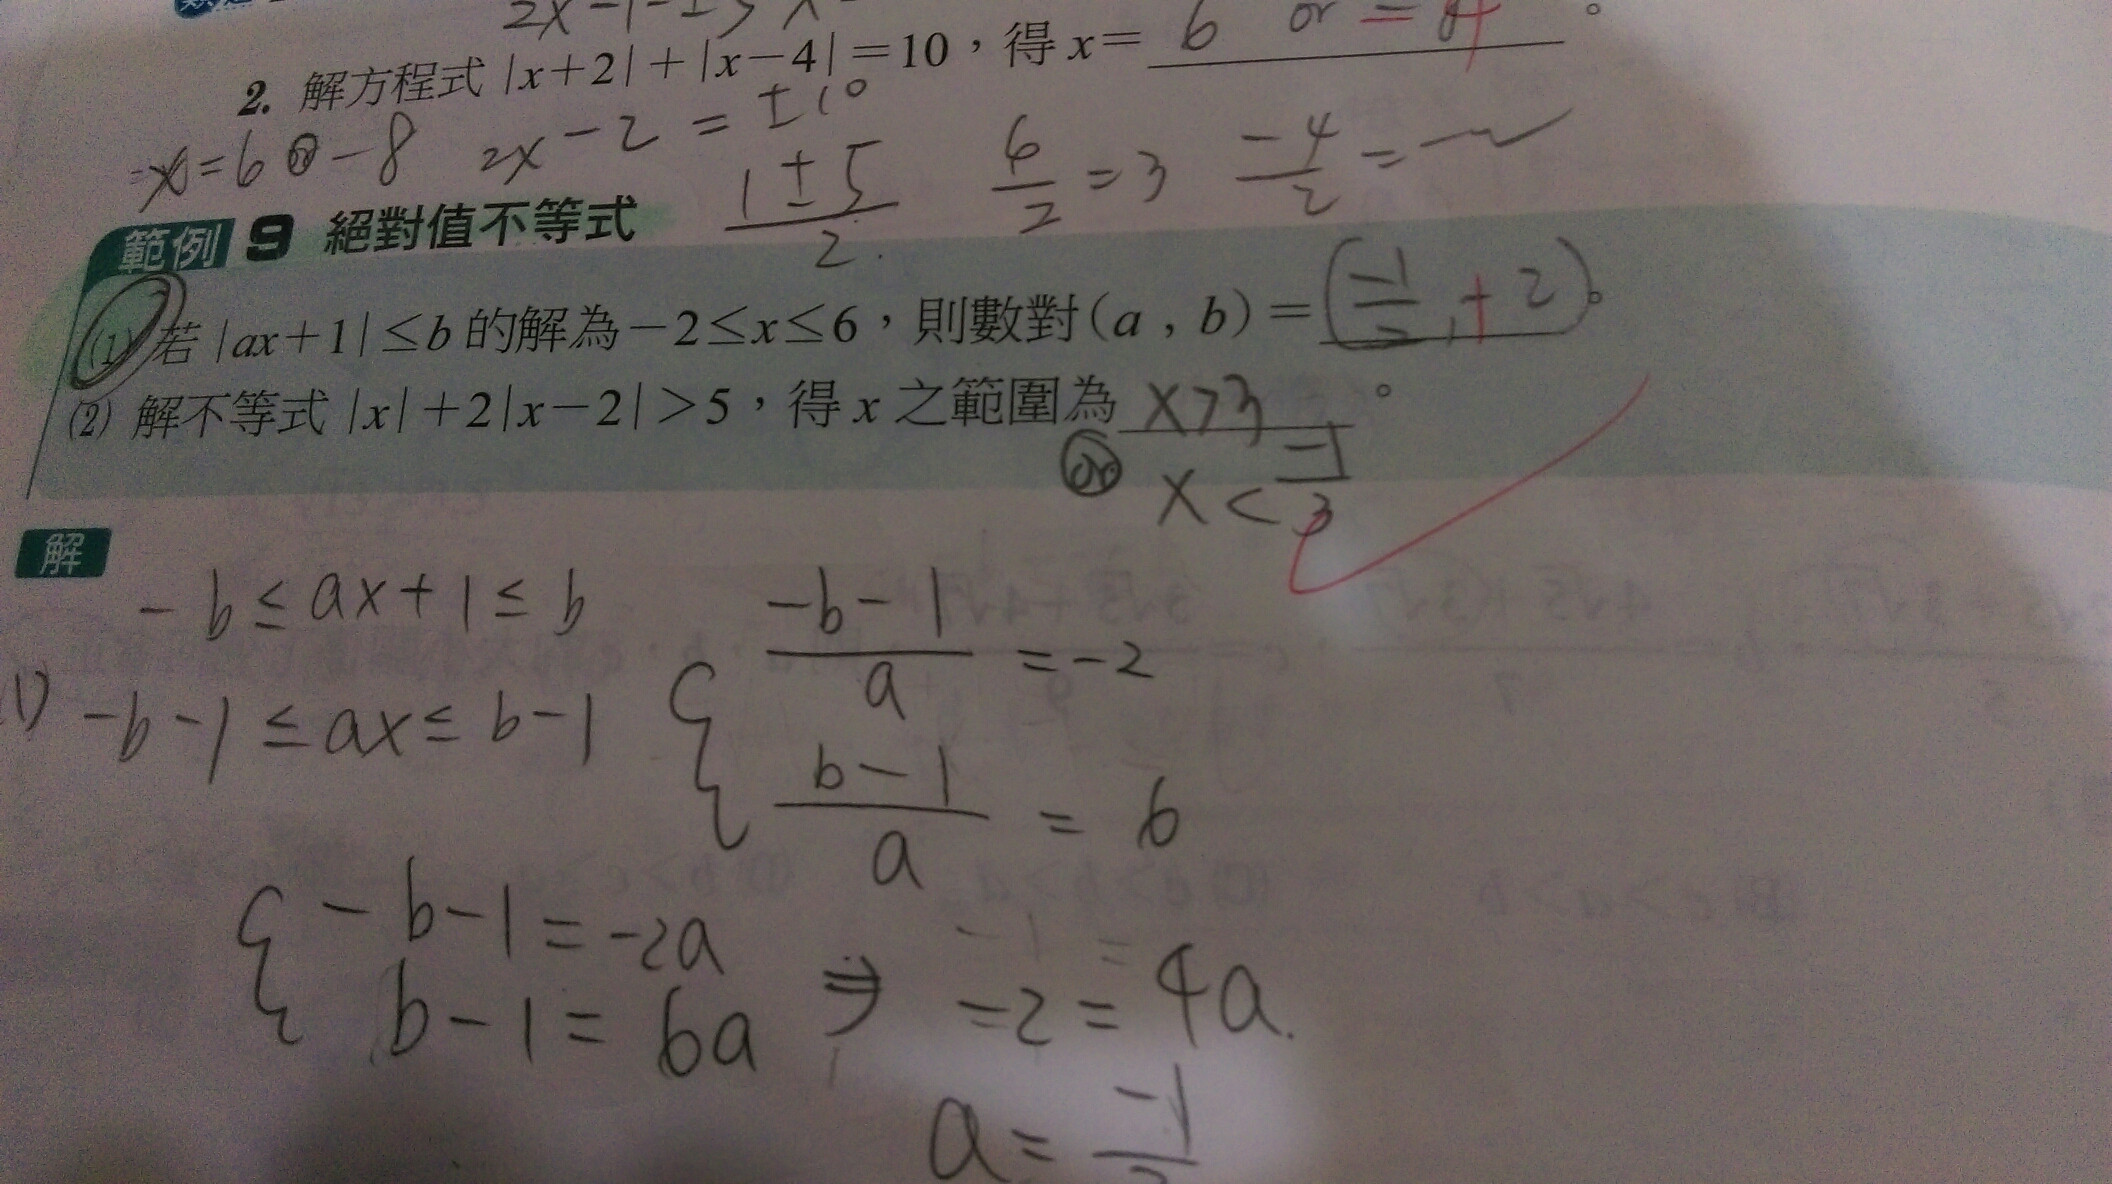 2x-1=±5
2. 解方程式 |x+2|+|x-4|=10，得 x= 6 or -4 。
x=6 or -8 2x-2=±10
1±5/2 6/2=3 -4/2=
範例 9 絕對值不等式
(1) 若 |ax+1|≤b 的解為 -2≤x≤6，則數對(a , b)= (-1/2, +2) 。
(2) 解不等式 |x|+2|x-2|>5，得 x 之範圍為 x>3 。
or x<-1/3
解
-b≤ax+1≤b
(1) -b-1≤ax≤b-1
{ -b-1/a =-2
b-1/a = 6
{ -b-1=-2a
b-1=6a ⇒ -2=4a
-1 =
a= -1/2